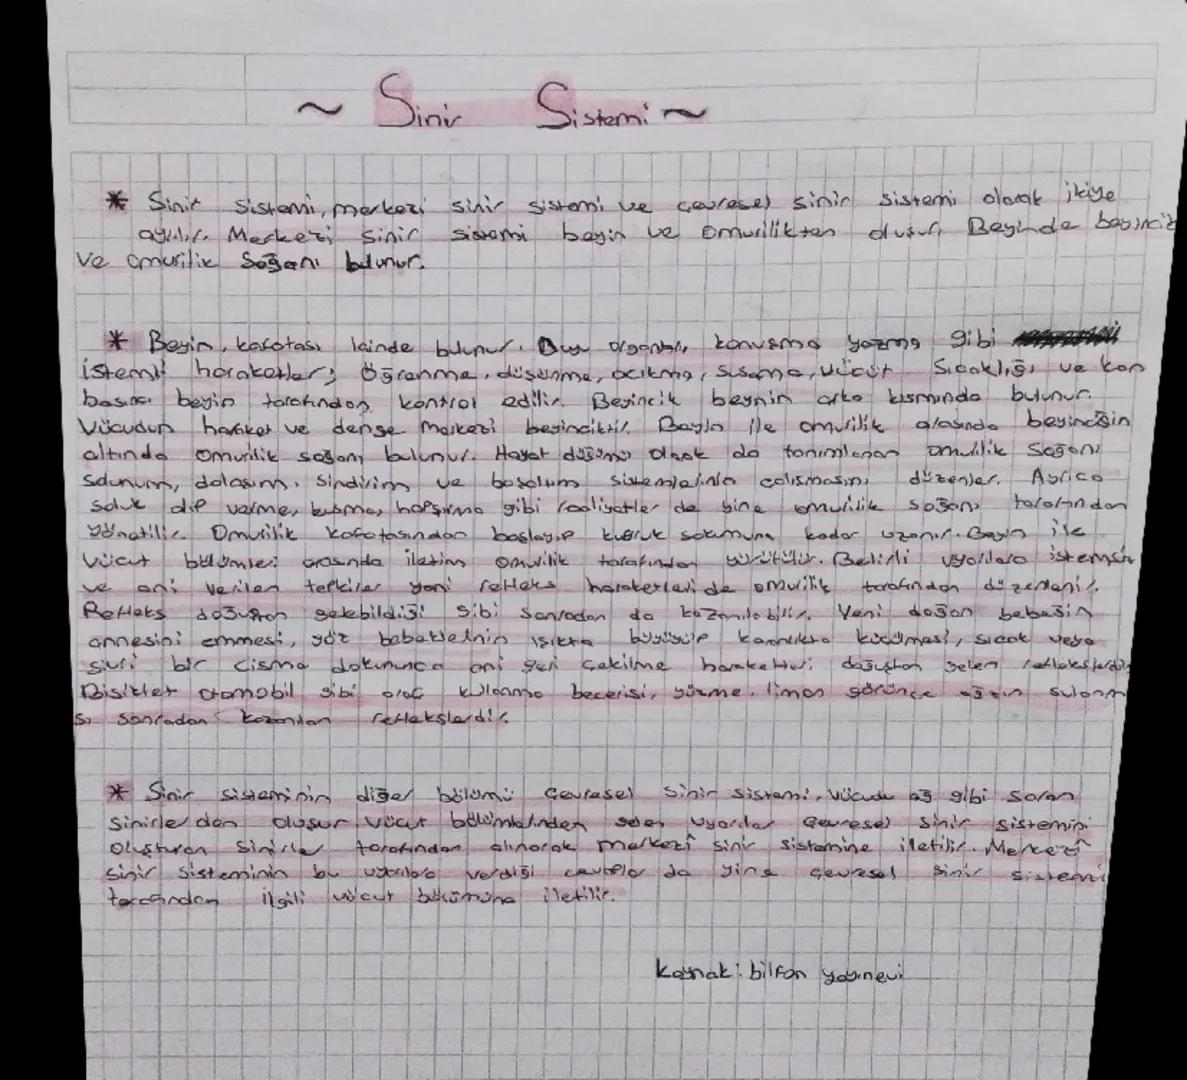 ~ Sinir Sistemi ~
* Sinir sistemi, merkezi sinir sistemi ve çevresel sinir sistemi olarak ikiye
ayrılır. Merkezi sinir sistemi beyin ve omurilikten oluşur. Beyinde beyincik
ve omurilik soğanı bulunur.
* Beyin, kafatası içinde bulunur. Duyu organları, konuşma yazma gibi
istemli hareketler; öğrenme, düşünme, acıkma, susama, vücut sıcaklığı ve kan
basıncı beyin tarafından kontrol edilir. Beyincik beynin arka kısmında bulunur.
Vücudun hareket ve denge merkezi beyinciktir. Beyin ile omurilik arasında beyinciğin
altında omurilik soğanı bulunur. Hayat düğümü olarak da tanımlanan omurilik soğanı
solunum, dolaşım, sindirim ve boşaltım sistemlerinin çalışmasını düzenler. Ayrıca
soluk alıp verme, kusma, hapşırma gibi faaliyetler de yine omurilik soğanı tarafından
yönetilir. Omurilik kafatasından başlayıp kuyruk sokumuna kadar uzanır. Beyin ile
vücut bölümleri arasında iletim omurilik tarafından yürütülür. Belirli uyarılara istemsiz
ve ani verilen tepkiler yani refleks hareketleri de omurilik tarafından düzenlenir.
Refleks doğuştan gelebildiği gibi sonradan da kazanılabilir. Yeni doğan bebeğin
annesini emmesi, göz bebeklerinin ışıkta büyüyüp karanlıkta küçülmesi, sıcak veya
sivri bir cisme dokununca ani geri çekilme hareketleri doğuştan gelen reflekslerdir.
Bisiklet otomobil gibi araç kullanma becerisi, yüzme, limon görünce ağzın sulanma
sı sonradan kazanılan reflekslerdir.
* Sinir sisteminin diğer bölümü çevresel sinir sistemi, vücudu ağ gibi saran
sinirlerden oluşur. Vücut bölümlerinden gelen uyarılar çevresel sinir sistemini
oluşturan sinirler tarafından alınarak merkezî sinir sistemine iletilir. Merkezî
sinir sisteminin bu uyarılara verdiği cevaplar da yine çevresel sinir sistemi
tarafından ilgili vücut bölümüne iletilir.
Kaynak: bilfen yayınevi